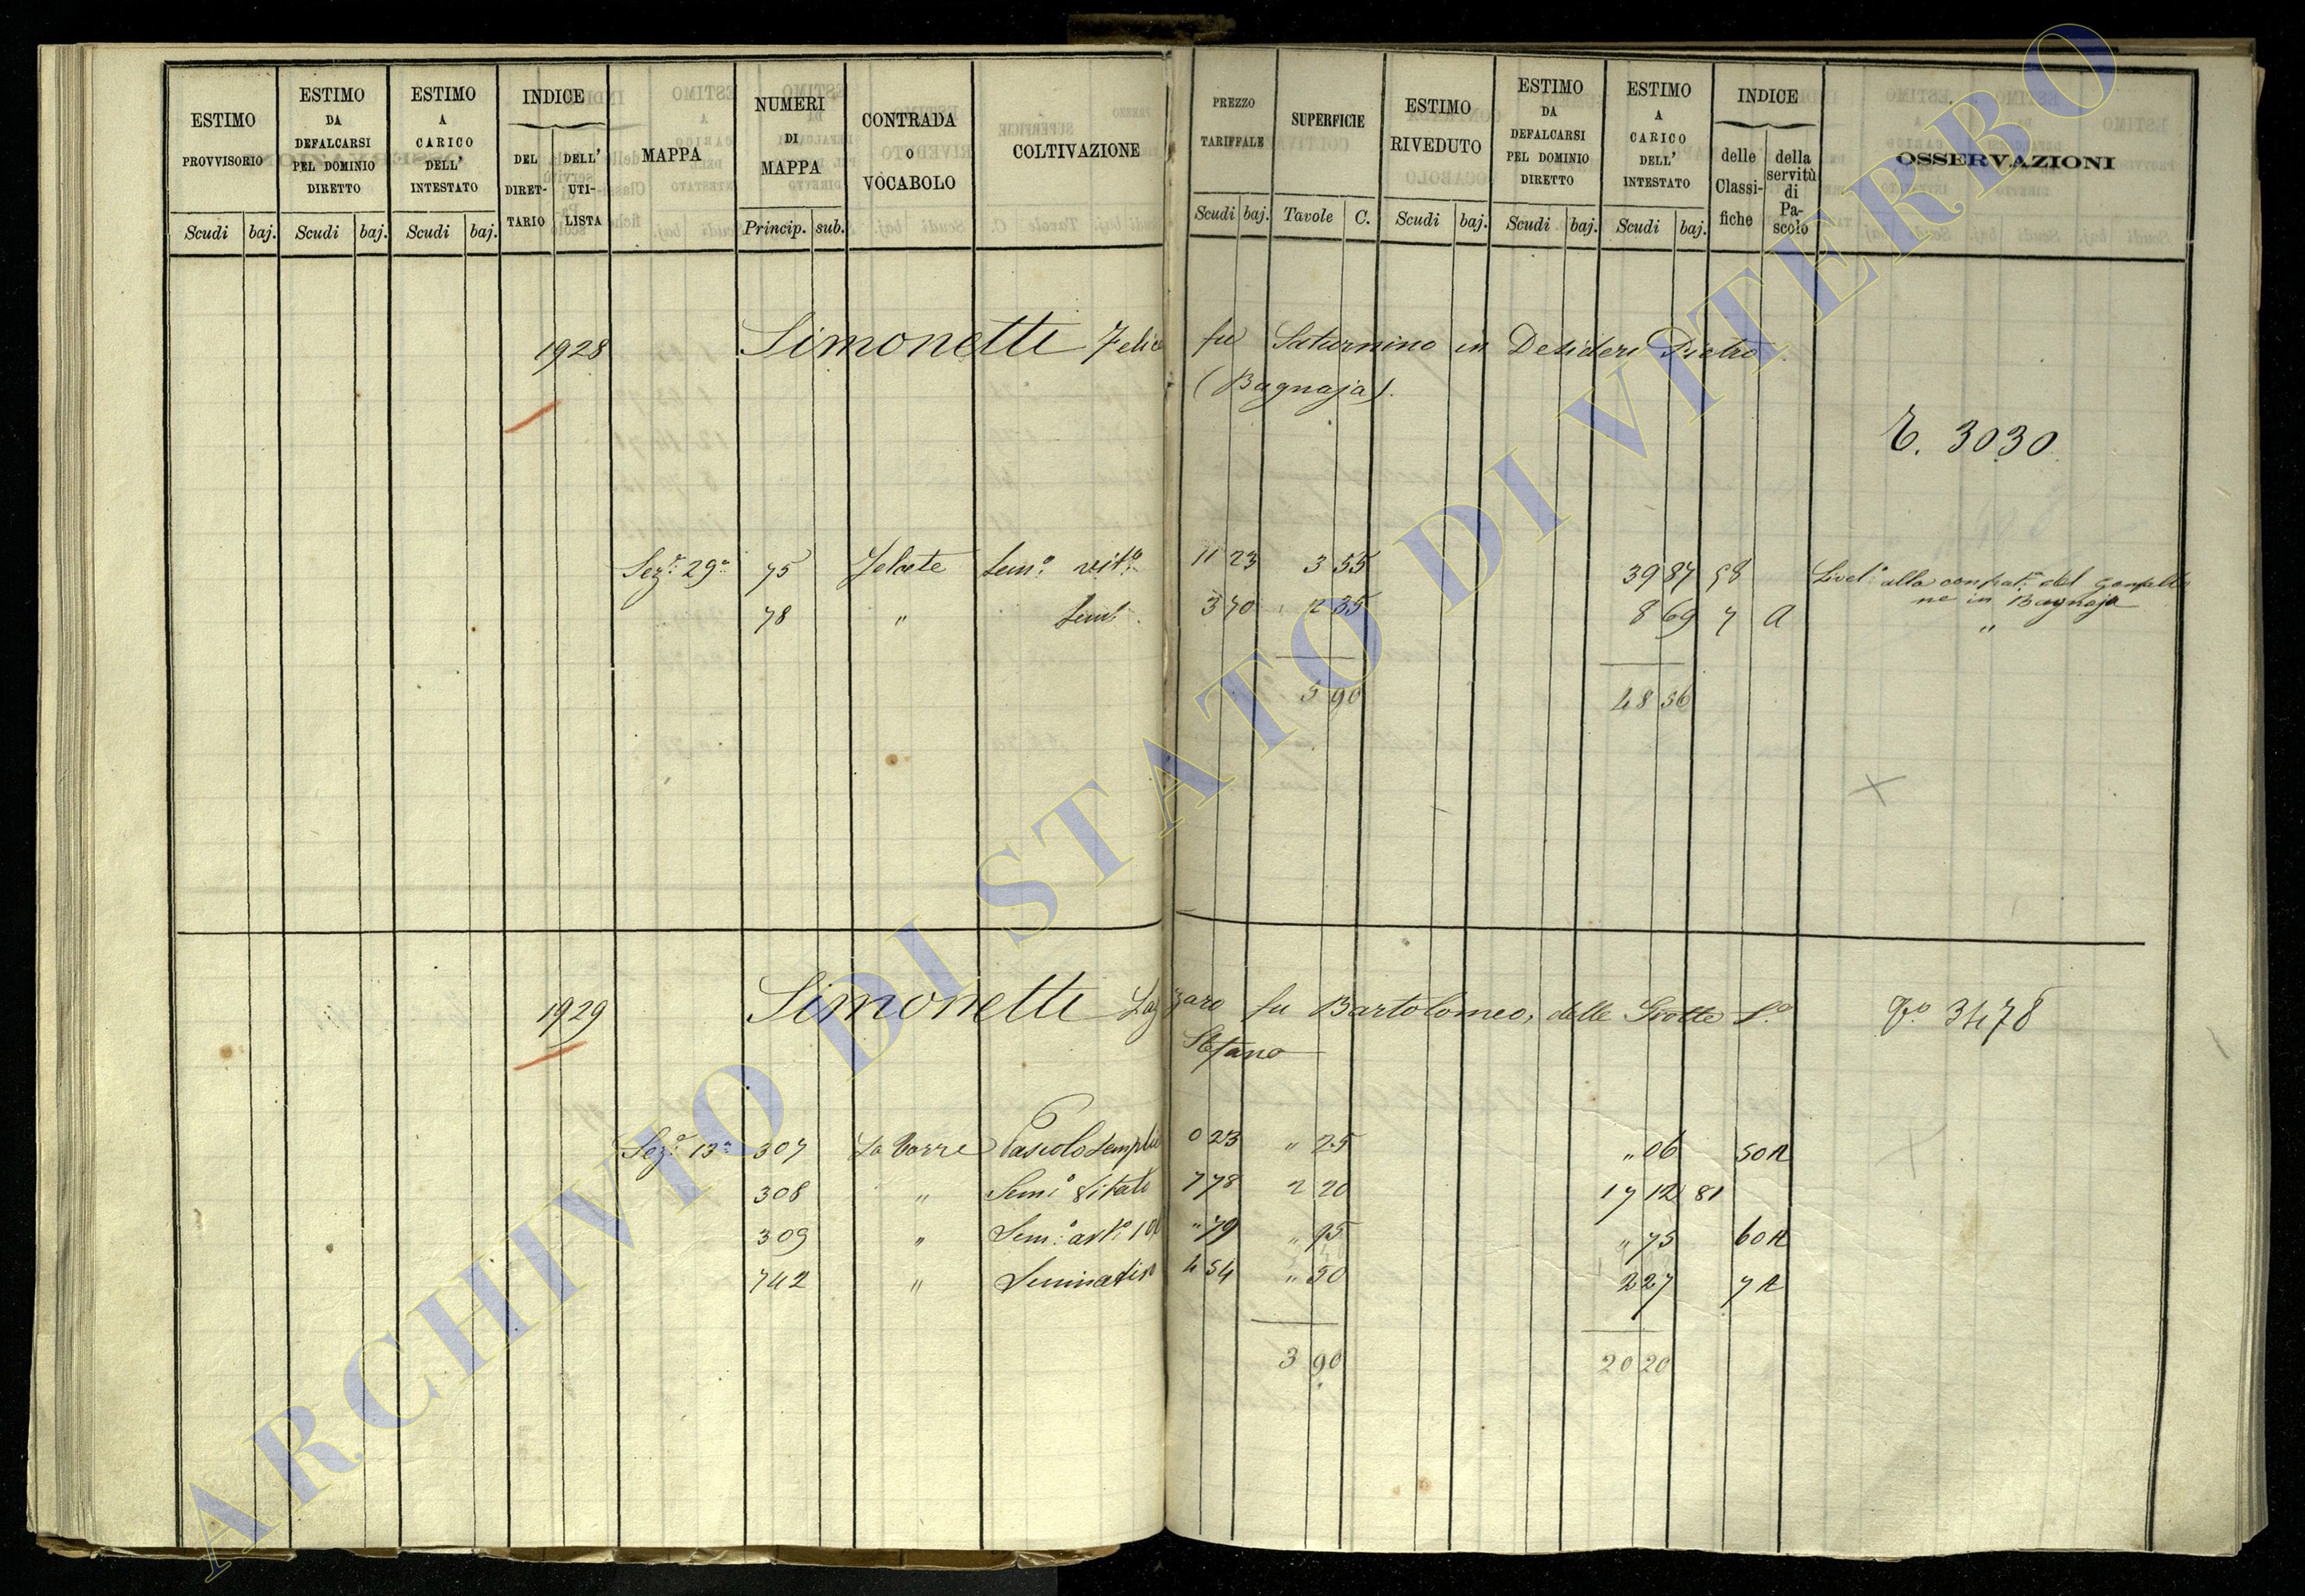 ESTIMO PROVVISORIO
Scudi baj.
ESTIMO DA DEFALCARSI PEL DOMINIO DIRETTO
Scudi baj.
ESTIMO A CARICO DELL' INTESTATO
Scudi baj.
INDICE
DEL DIRETTARIO DELL' UTILISTA
MAPPA
NUMERI DI MAPPA
Princip. sub.
CONTRADA O VOCABOLO
COLTIVAZIONE
PREZZO TARIFFALE
Scudi baj.
SUPERFICIE
Tavole C.
ESTIMO RIVEDUTO
Scudi baj.
ESTIMO DA DEFALCARSI PEL DOMINIO DIRETTO
Scudi baj.
ESTIMO A CARICO DELL' INTESTATO
Scudi baj.
INDICE
delle Classifiche della servitù di Pascolo
OSSERVAZIONI
1928 Simonetti Felice fu Saturnino in Desideri Pietro
(Bagnaja).
3030
Sez.e 29a 75 Sem.o vit.o 11 23 3 55 39 87 58 Livel.o alla confrat.a del Gonfalo
ne in Bagnaja
78 " Sem.o 3 70 2 35 8 69 7 A "
5 90 48 56
1929 Simonetti Lazzaro fu Bartolomeo, delle Grotte S.o 3478
Stefano
Sez.e 13a 307 La Torre Pascolo semplice 0 23 " 25 " 06 50 A
308 " Sem.o Vitato 7 78 2 20 17 12 81
309 " Sem.o " 79 " 95 " 75 60 A
742 " Seminativo 4 54 " 50 2 27 7 A
3 90 20 20
ARCHIVIO DI STATO DI VITERBO